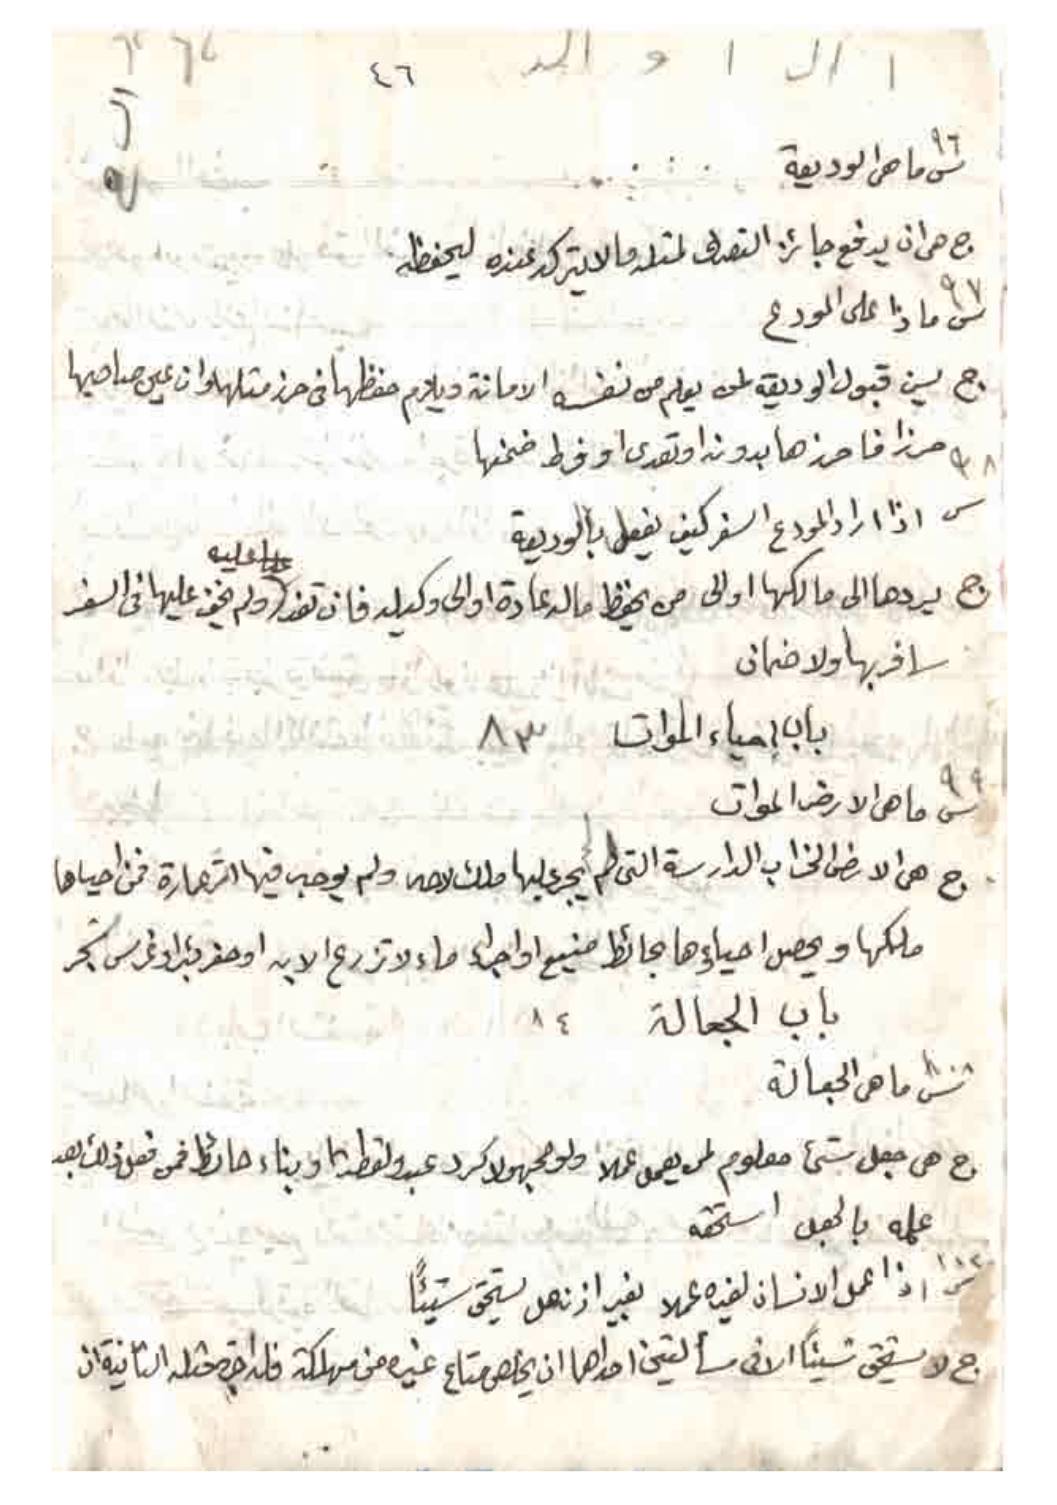 ٤٦
٩٦
س ما هى الوديعة
ج هى ان يدفع جائز التصرف لمثله مالا يتركه عنده ليحفظه
٩٧
س ما ذا على المودع
ج يسن قبول الوديعة لمن يعلم من نفسه الامانة ويلزم حفظها فى حرز مثلها وان عين صاحبها
حرزا فاحرزها بدونه او تعدى او فرط ضمنها
٩٨
س اذا اراد المودع السفر كيف يفعل بالوديعة
ج يردها الى مالكها او الى من يحفظ ماله عادة او الى وكيله فان تعذر ولم يخف عليها فى السفر
سافر بها ولا ضمان
باب إحياء الموات ٨٣
٩٩
س ما هى الارض الموات
ج هى الارض الخراب الدارسة التى لم يجر عليها ملك لاحد ولم يوجد فيها اثر عمارة فمن احياها
ملكها ويحصل احياؤها بحائط منيع او اجراء ماء لا تزرع الا به او حفر بئر او غرس شجر
باب الجعالة ٨٤
س ما هى الجعالة
ج هى جعل شئ معلوم لمن يعمل عملا ولو مجهولا كرد عبد ولقطة او بناء حائط فمن فعل ذلك بعد
علمه بالجعل استحقه
س اذا عمل الانسان لغيره عملا بغير اذنه هل يستحق شيئًا
ج لا يستحق شيئًا الا فى مسألتين احداهما ان يخلص متاع غيره من مهلكة فله اجرة مثله الثانية ان